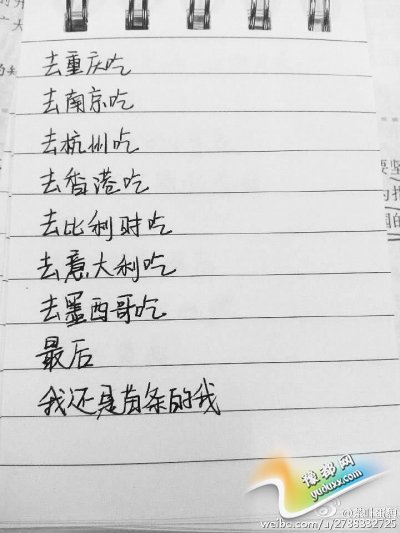 去重庆吃
去南京吃
去杭州吃
去香港吃
去比利时吃
去意大利吃
去墨西哥吃
最后
我还是苗条的我
豫都网
yuduxx.com
weibo.com/u/2738332725